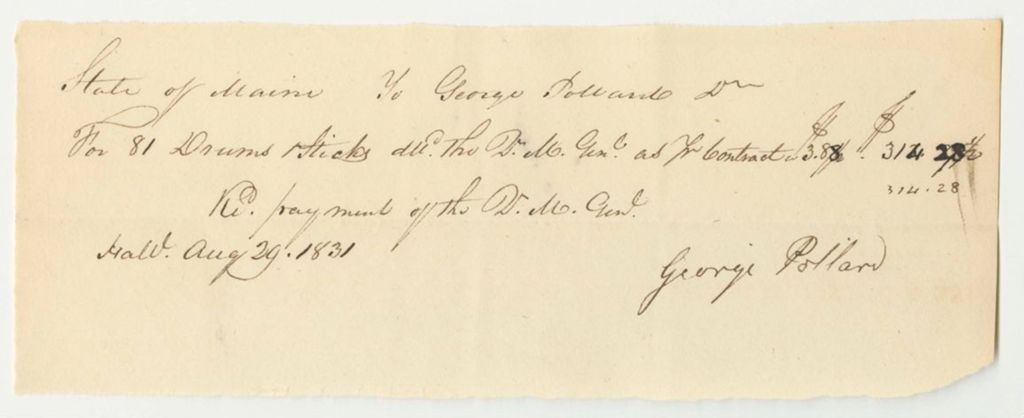 State of Maine To George Pollard Dr
For 81 Drums & Sticks dld. the Qr. M. Genl. as pr Contract $3.88 $314 28
314.28
Recd. payment of the Qr. M. Genl.
Halll. Aug 29. 1831
George Pollard